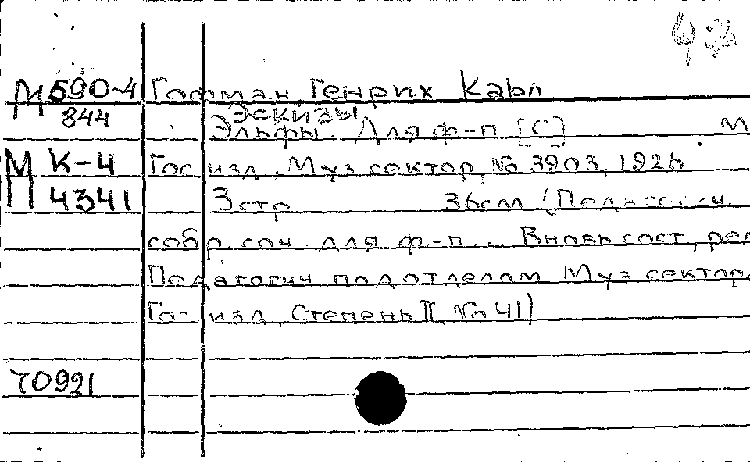 М 590-4 Гофман, Генрих Карл
844 Эскизы
Эльфы. Для ф-п [С] М
МП К-4 Гос. изд. Муз сектор, № 3903, 192
4341 3стр 36см (
собр. соч. для ф-п. Вновь сост, ред
Педагогич подотделом Муз сектора
Гос изд, Степень II № 41)
70991